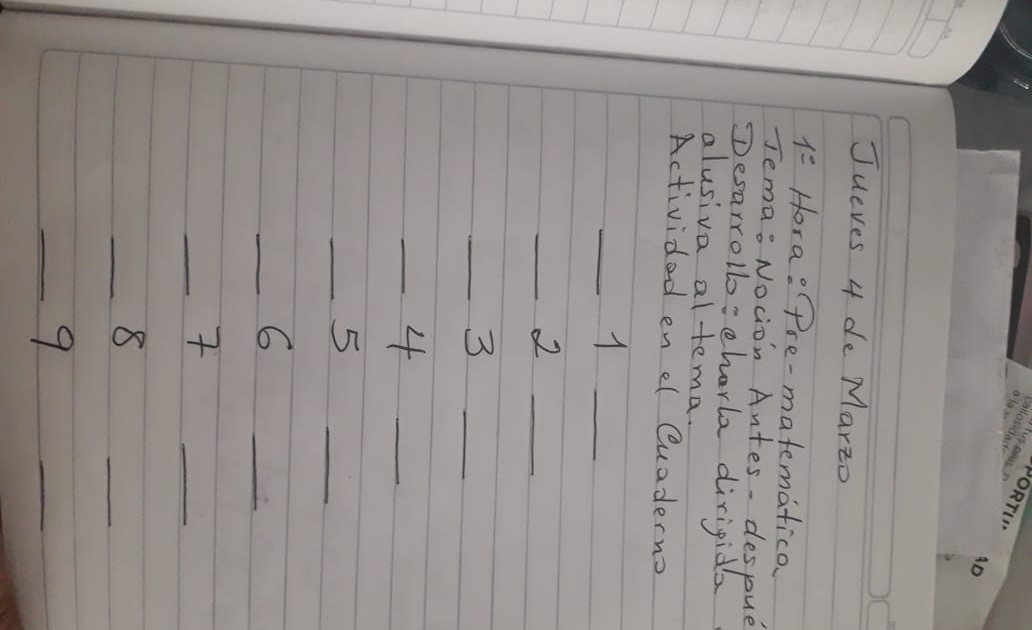 Jueves 4 de Marzo
1º Hora: Pre-matemática
Tema: Noción Antes - despué
Desarrollo: charla dirigida
alusiva al tema.
Actividad en el Cuaderno
__ 1 __
__ 2 __
__ 3 __
__ 4 __
__ 5 __
__ 6 __
__ 7 __
__ 8 __
__ 9 __